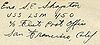 Ens. S. E. Shapton
USS LSM 450
℅ Fleet Post Office
San Francisco Calif